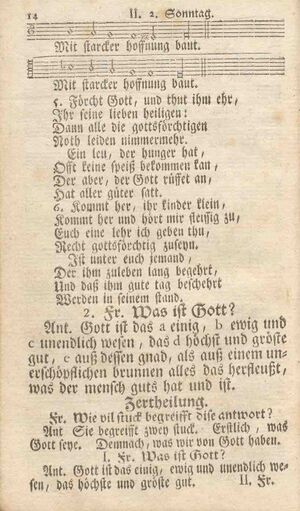 14 II. 2. Sonntag.
Mit starcker hoffnung baut.
Mit starcker hoffnung baut.
5. Förcht Gott, und thut ihm ehr,
Ihr seine lieben heiligen:
Dann alle die gottsförchtigen
Noth leiden nimmermehr.
Ein leu, der hunger hat,
Offt keine speiß bekommen kan,
Der aber, der Gott rüffet an,
Hat aller güter satt.
6. Kommt her, ihr kinder klein,
Kommt her und hört mir fleissig zu,
Euch eine lehr ich geben thu,
Recht gottsförchtig zuseyn.
Ist unter euch jemand,
Der ihm zuleben lang begehrt,
Und daß ihm gute tag beschehrt
Werden in seinem stand.
2. Fr. Was ist Gott?
Ant. Gott ist das a einig, b ewig und
c unendlich wesen, das d höchst und gröste
gut, e auß dessen gnad, als auß einem un-
erschöpflichen brunnen alles das herfleußt,
was der mensch guts hat und ist.
Zertheilung.
Fr. Wie vil stuck begreifft dise antwort?
Ant Sie begreifft zwey stuck. Erstlich, was
Gott seye. Demnach, was wir von Gott haben.
I. Fr. Was ist Gott?
Ant. Gott ist das einig, ewig und unendlich we-
sen, das höchste und gröste gut. II. Fr.